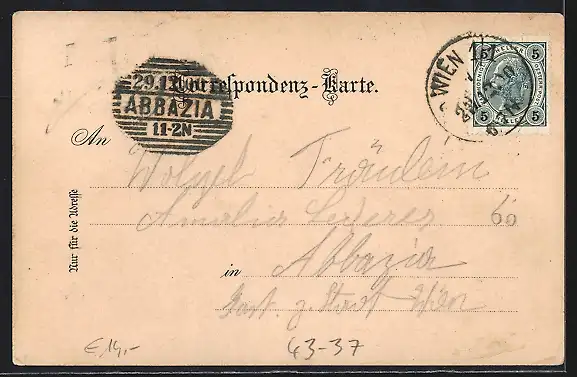 Correspondenz-Karte.
29.11
ABBAZIA
11-2N
WIEN
5 5
5 5
An
Wolgeb. Fräulein
Amalia Lederer
60
in Abbazia
Gast. z. Stadt Wien
Nur für die Adresse
€ 14,-
43-37